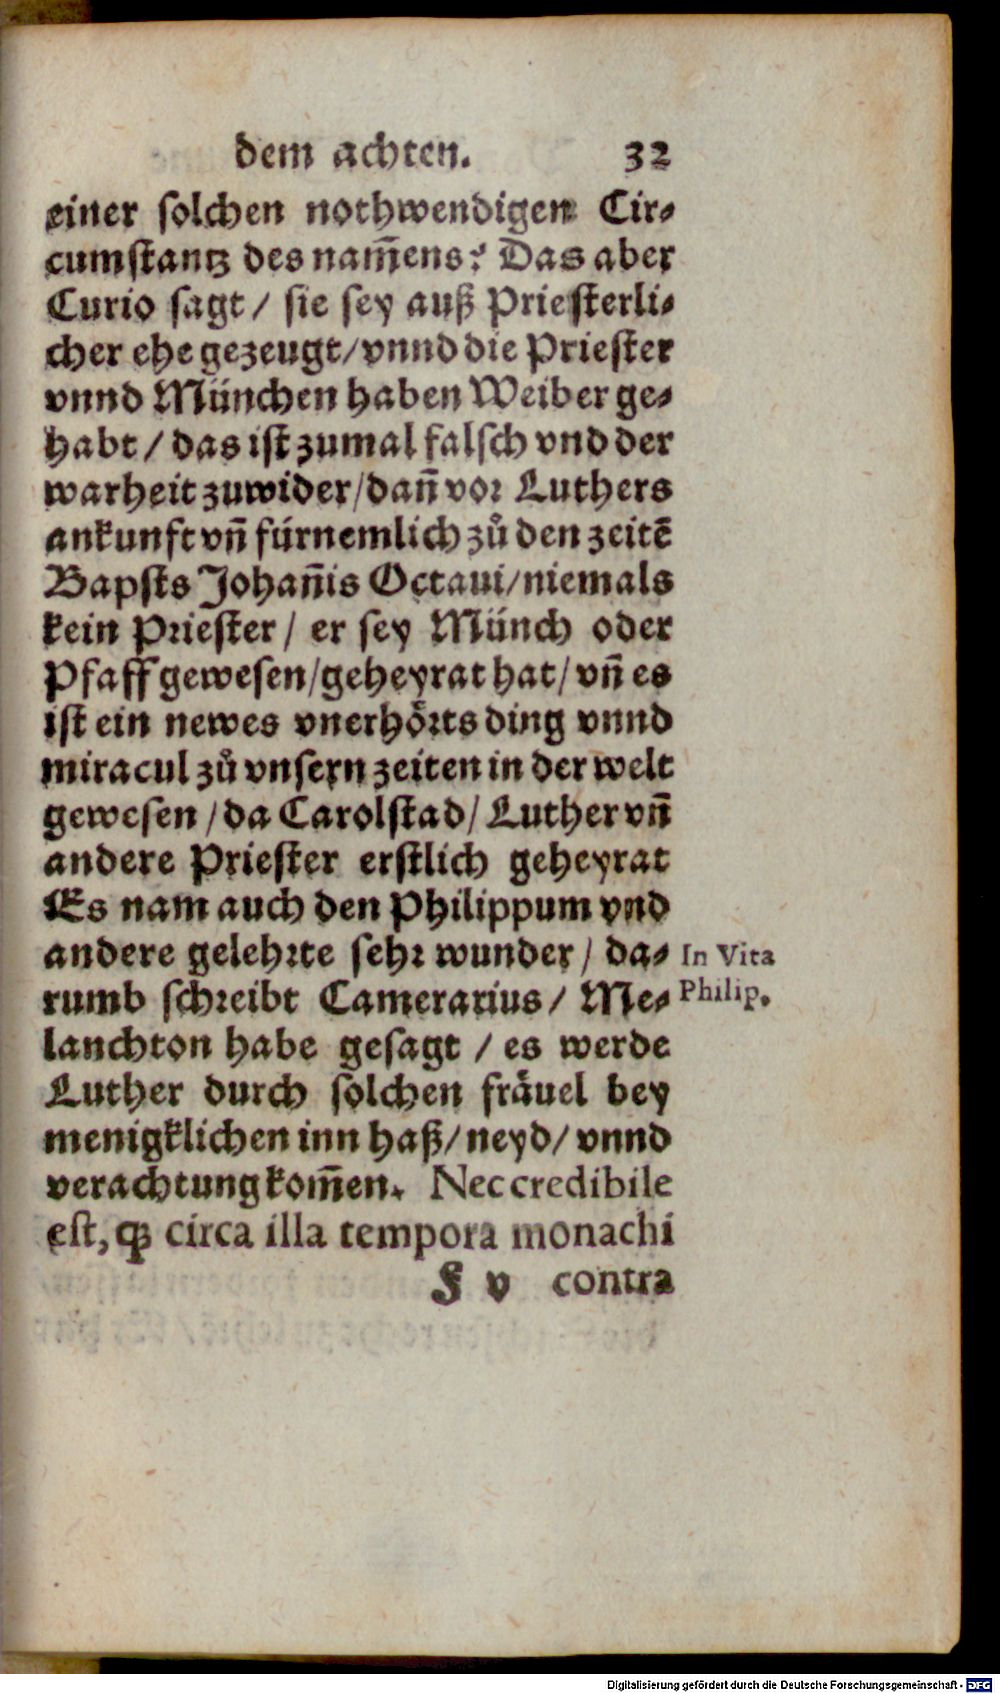 dem achten. 32
einer solchen nothwendigen Cir⸗
cumstantz des nam̃ens? Das aber
Curio sagt / sie sey auß Priesterli⸗
cher ehe gezeugt/vnnd die Priester
vnnd München haben Weiber ge⸗
habt / das ist zumal falsch vnd der
warheit zuwider/dañ vor Luthers
ankunft vñ fürnemlich zů den zeitẽ
Bapsts Johañis Octaui/niemals
kein Priester / er sey Münch oder
Pfaff gewesen/geheyrat hat/ vñ es
ist ein newes vnerhörts ding vnnd
miracul zů vnsern zeiten in der welt
gewesen /da Carolstad/ Luther vñ
andere Priester erstlich geheyrat
Es nam auch den Philippum vnd
andere gelehrte sehr wunder / da⸗
In Vita
rumb schreibt Camerarius / Me⸗
Philip.
lanchton habe gesagt / es werde
Luther durch solchen fräuel bey
menigklichen inn haß/neyd/ vnnd
verachtung kom̃en. Nec credibile
est, ꝙ circa illa tempora monachi
F v contra
Digitalisierung gefördert durch die Deutsche Forschungsgemeinschaft - DFG